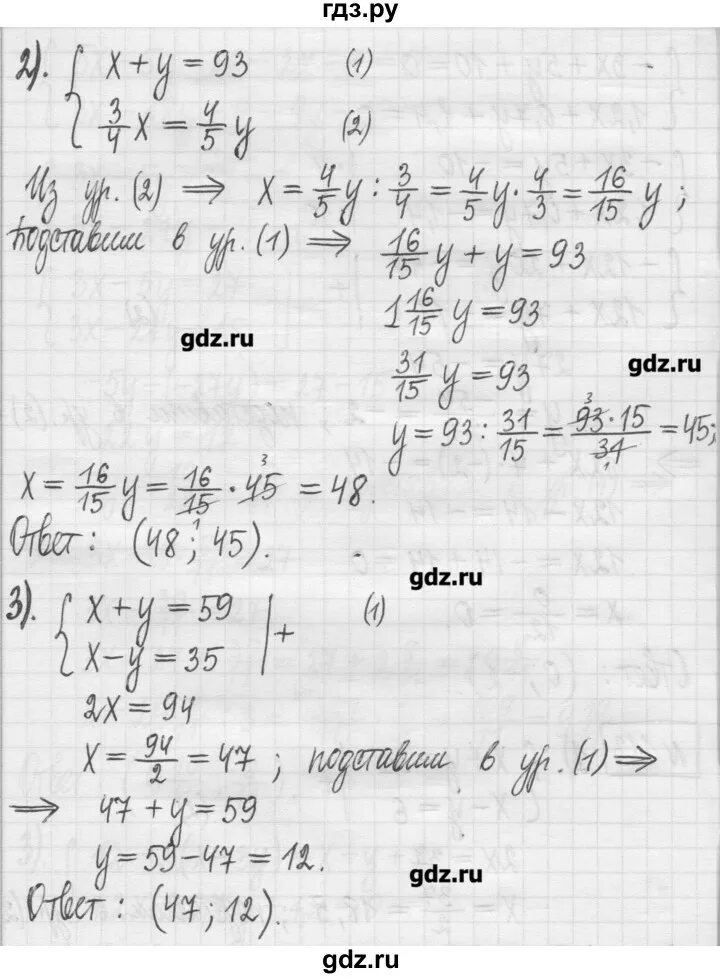 гдз.ру
2). { x + y = 93 (1)
3/4 x = 4/5 y (2)
Из ур. (2) ⟹ x = 4/5 y : 3/4 = 4/5 y · 4/3 = 16/15 y ;
подставим в ур. (1) ⟹ 16/15 y + y = 93
1 16/15 y = 93
gdz.ru
31/15 y = 93
gdz.ru
y = 93 : 31/15 = 93 · 15 / 31 = 45;
3
1
x = 16/15 y = 16/15 · 45 = 48.
3
1
Ответ: (48 ; 45).
gdz.ru
3). { x + y = 59 | + (1)
x − y = 35
2x = 94
x = 94/2 = 47 ; подставим в ур. (1) ⟹
⟹ 47 + y = 59
y = 59 − 47 = 12.
gdz.ru
Ответ: (47 ; 12).
gdz.ru